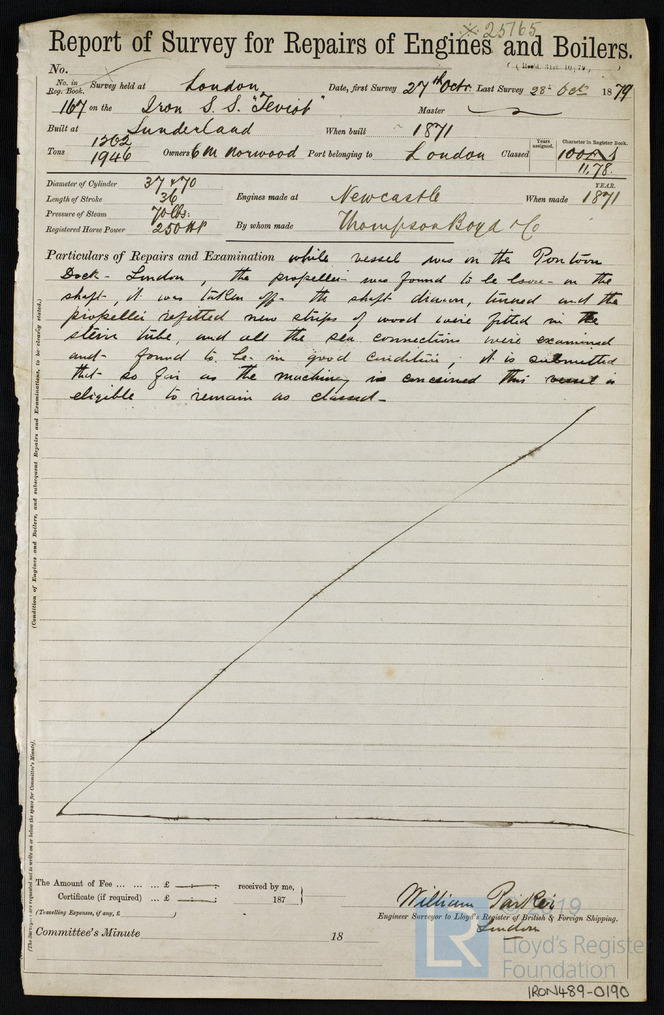 25165
Report of Survey for Repairs of Engines and Boilers.
(Rec'd. 31st 10, 79,)
No.
No. in Reg. Book. Survey held at London Date, first Survey 27th Octr. Last Survey 28th Oct 1879
167 on the Iron S. S. "Teviot" Master
Built at Sunderland When built 1871
Tons 1262 1946 Owners G M Norwood Port belonging to London Classed Years assigned. Character in Register Book. 100A1 11.78.
Diameter of Cylinder 37 & 70
Length of Stroke 36 Engines made at Newcastle When made YEAR. 1871
Pressure of Steam 70 lbs:
Registered Horse Power 250 HP By whom made Thompson Boyd & Co
Particulars of Repairs and Examination while vessel was on the Pontoon
Dock - London, the propeller was found to be loose on the
shaft, it was taken off - the shaft drawn, turned and the
propeller refitted new strips of wood were fitted in the
stern tube, and all the sea connections were examined
and found to be in good condition, it is submitted
that so far as the machinery is concerned this vessel is
eligible to remain as classed -
(Condition of Engines and Boilers, and subsequent Repairs and Examinations, to be clearly stated.)
(The Surveyors are requested not to write on or below the space for Committee's Minute).
The Amount of Fee ... ... ... £ : : received by me,
Certificate (if required) ... £ : : 187
(Travelling Expenses, if any, £ )
William Parker
Engineer Surveyor to Lloyd's Register of British & Foreign Shipping.
London
Committee's Minute 18
© 2019
LR
Lloyd's Register
Foundation
IRON489-0190